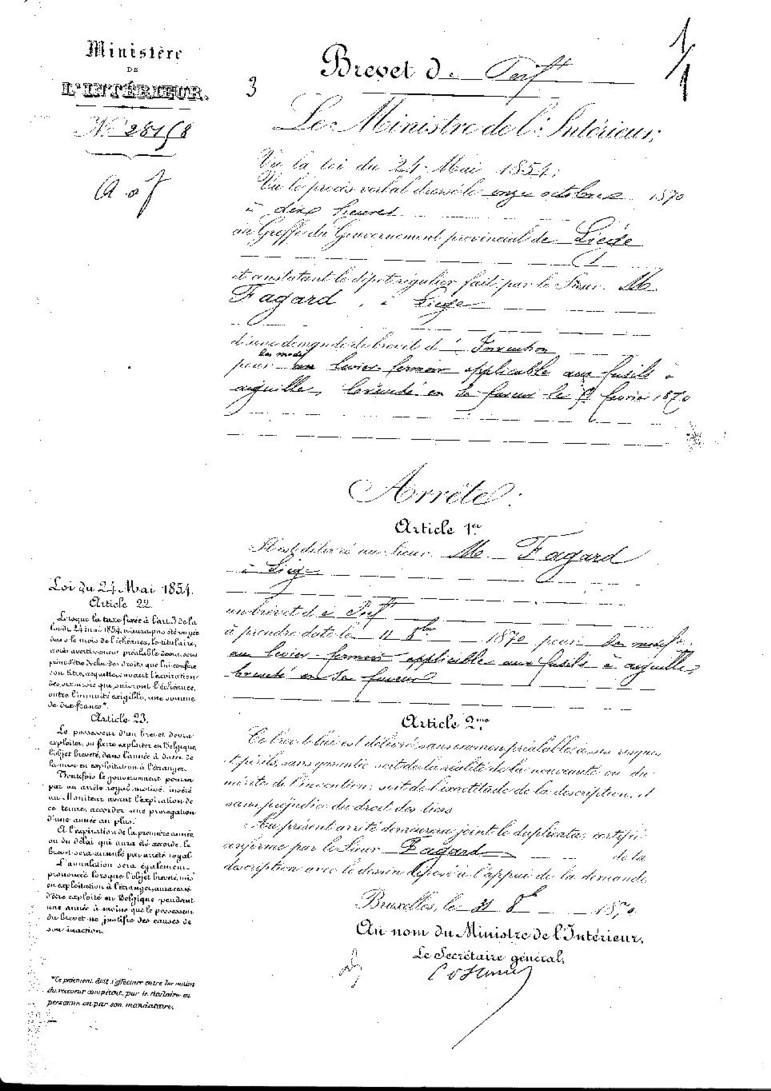 Ministère
DE
L'INTÉRIEUR.
Brevet de Perft
1/1
3
Le Ministre de l'Intérieur,
Vu la loi du 24 Mai 1854;
Vu le procès verbal dressé le onze octobre 1870
à heures
au Greffe du Gouvernement provincial de Liége
et constatant le dépôt régulier fait par le Sieur M
Fagard, à Liége
d'une demande de brevet d'Invention
pour des modif
levier fermoir applicable aux fusils à
aiguille, breveté en sa faveur le février 1870
Arrête:
Article 1er
Il est délivré au Sieur M Fagard
à Liége
un brevet de Perft
à prendre date le 11 8bre 1870 pour des modif
au levier-fermoir applicable aux fusils à aiguille,
breveté en sa faveur
Article 2me
Ce brevet lui est délivré sans examen préalable, à ses risques
et périls, sans garantie soit de la réalité, de la nouveauté ou du
mérite de l'invention, soit de l'exactitude de la description, et
sans préjudice du droit des tiers.
Au présent arrêté demeurera joint le duplicata, certifié
conforme par le Sieur Fagard de la
description avec le dessin déposé à l'appui de la demande.
Bruxelles, le 31 8bre 1870
Au nom du Ministre de l'Intérieur,
Le Secrétaire général,
Loi du 24 Mai 1854.
Article 22.
Lorsque la taxe fixée à l'art. 3 de la
loi du 24 mai 1854, n'aura pas été payée
dans le mois de l'échéance, le titulaire,
après avertissement préalable devra, sous
peine d'être déchu des droits que lui confère
son titre, acquitter, avant l'expiration
des six mois qui suivront l'échéance,
outre l'annuité exigible, une somme
de dix francs*.
Article 23.
Le possesseur d'un brevet devra
exploiter, ou faire exploiter en Belgique,
l'objet breveté, dans l'année à dater de
la mise en exploitation à l'étranger.
Toutefois le gouvernement pourra
par un arrêté royal motivé, inséré
au Moniteur avant l'expiration de
ce terme, accorder une prorogation
d'une année au plus.
A l'expiration de la première année
ou du délai qui aura été accordé, le
brevet sera annulé par arrêté royal.
L'annulation sera également
prononcée lorsque l'objet breveté, mis
en exploitation à l'étranger, aura cessé
d'être exploité en Belgique pendant
une année, à moins que le possesseur
du brevet ne justifie des causes de
son inaction.
*Ce paiement doit s'effectuer entre les mains
du receveur compétent, par le titulaire en
personne ou par son mandataire.